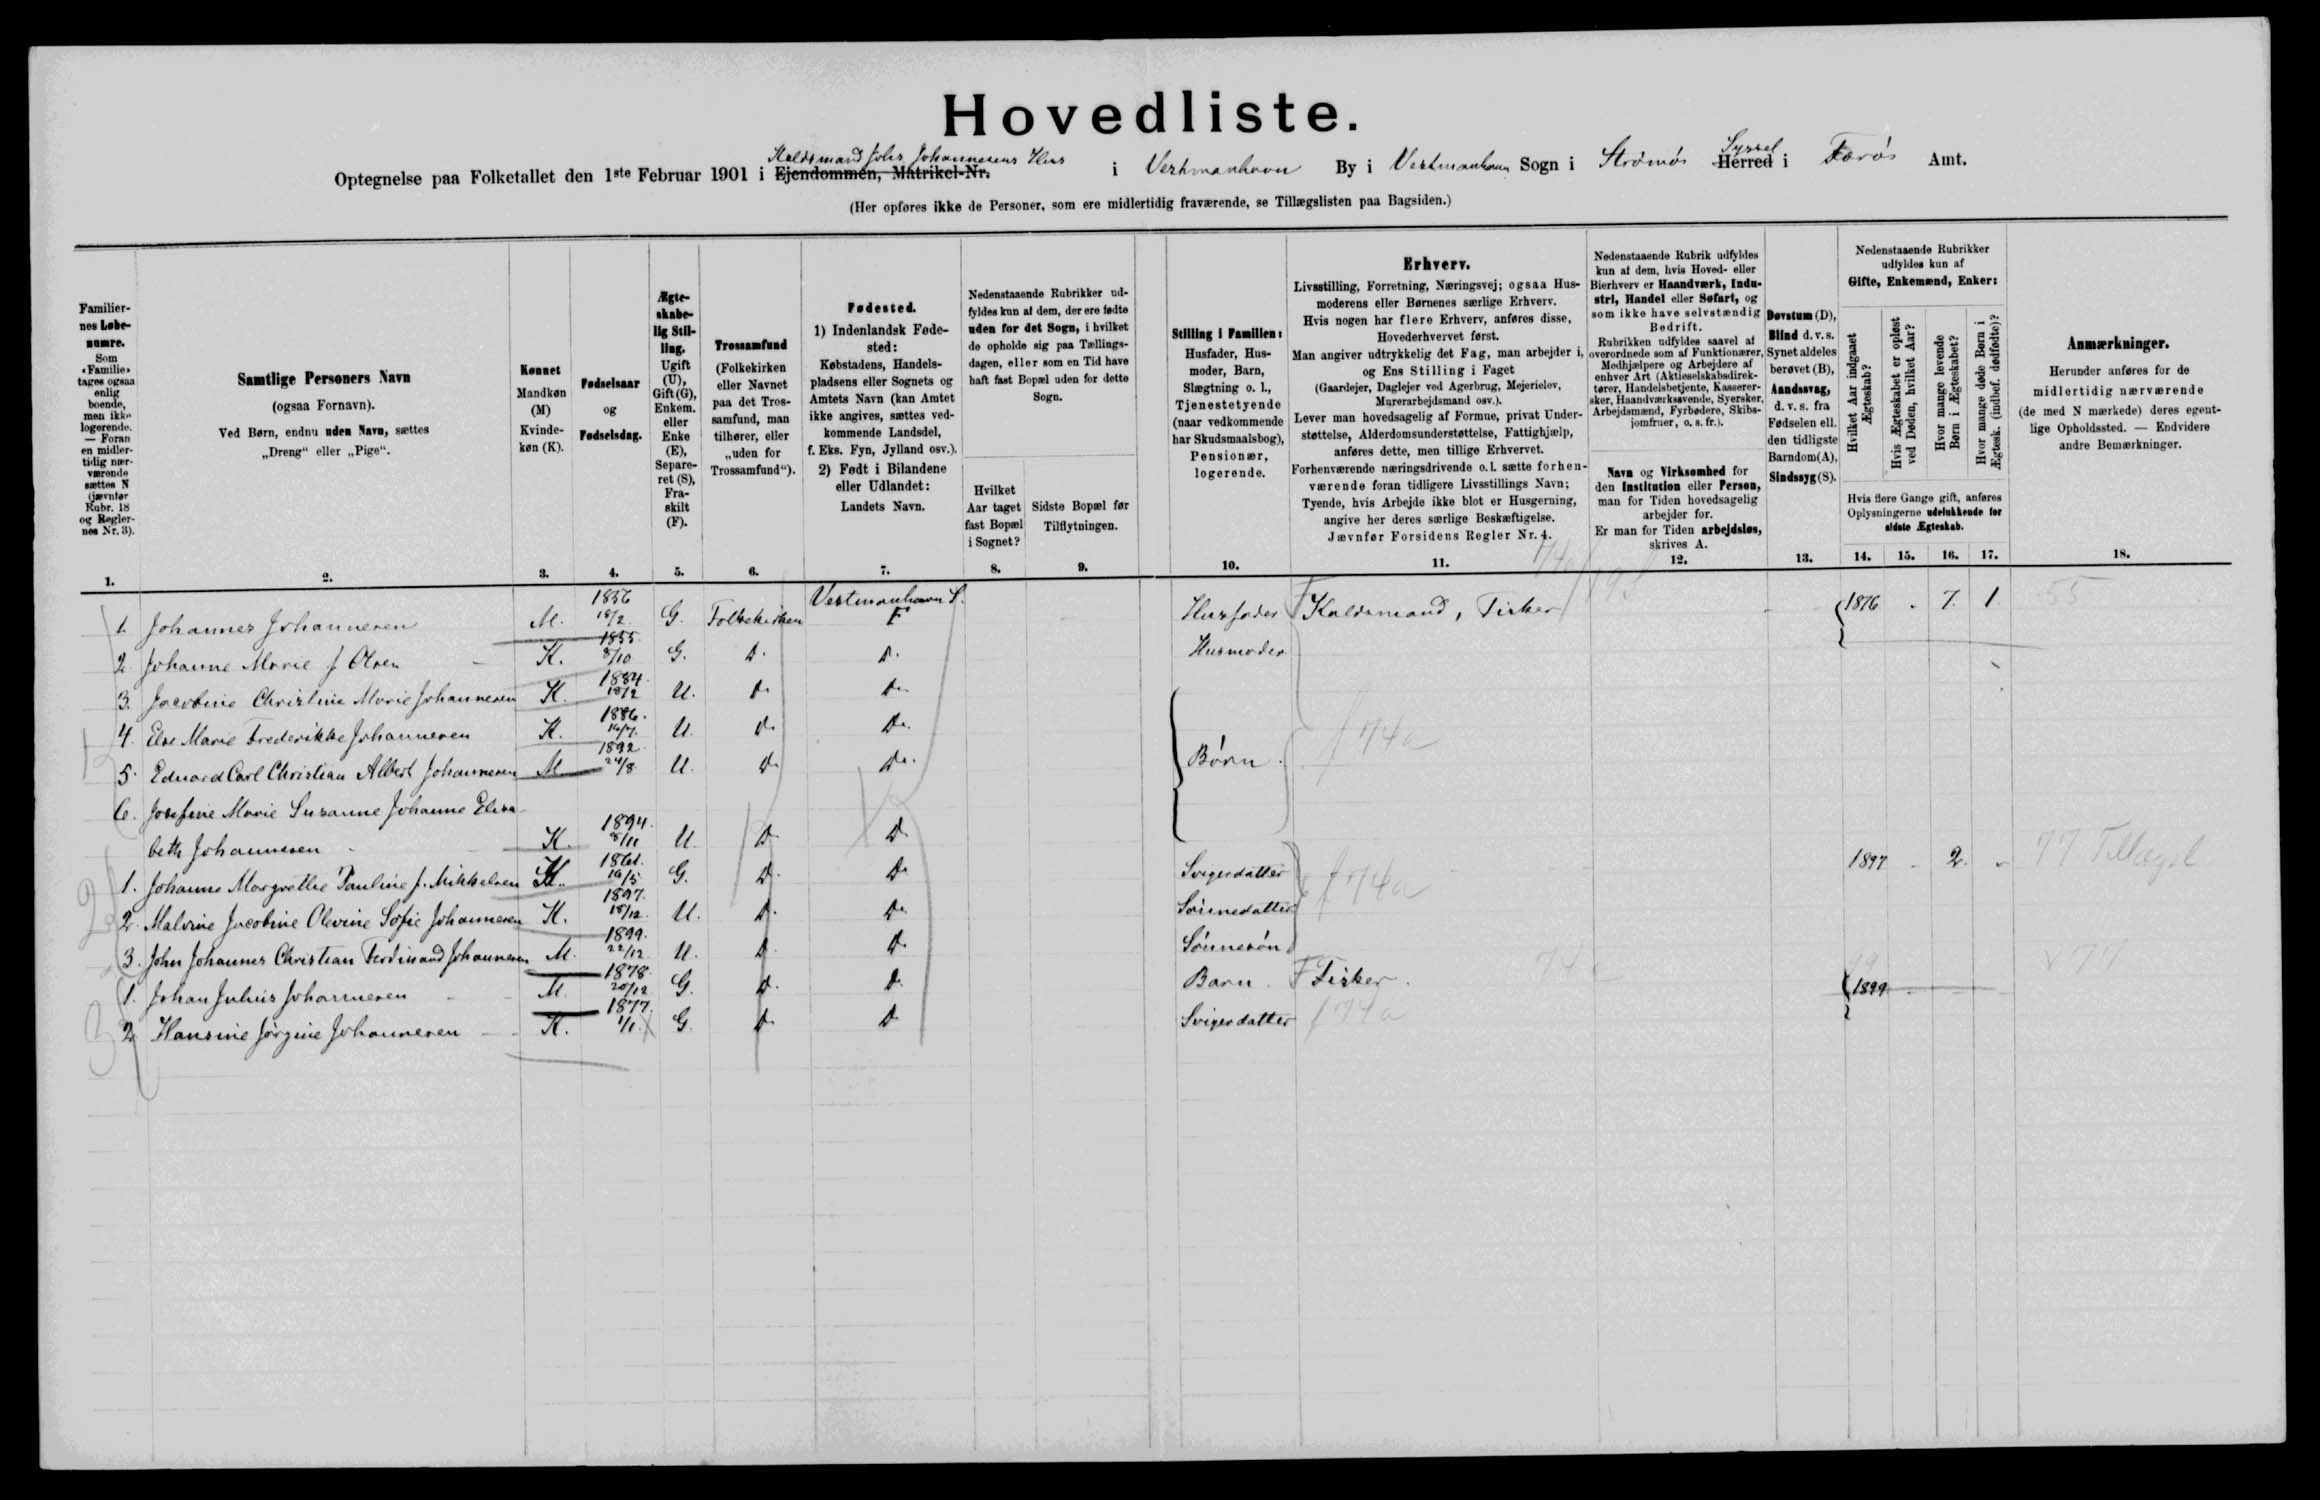 Hovedliste.
Kaldsmand Johs Johannesens Hus Syssel
Optegnelse paa Folketallet den 1ste Februar 1901 i Ejendommen, Matrikel-Nr. i Vestmanhavn By i Vestmanhavn Sogn i Strömö Herred i Færö Amt.
(Her opføres ikke de Personer, som ere midlertidig fraværende, se Tillægslisten paa Bagsiden.)
Familiernes Løbenumre.
Som «Familie» tages ogsaa enlig boende, men ikke logerende. — Foran en midlertidig nærværende sættes N (jævnfør Rubr. 18 og Reglernes Nr. 3).
1.
Samtlige Personers Navn
(ogsaa Fornavn).
Ved Børn, endnu uden Navn, sættes
„Dreng“ eller „Pige“.
2.
Kønnet
Mandkøn
(M)
Kvindekøn (K).
3.
Fødselsaar
og
Fødselsdag.
4.
Ægteskabelig Stilling.
Ugift (U), Gift (G), Enkem. eller Enke (E), Separeret (S), Fraskilt (F).
5.
Trossamfund
(Folkekirken eller Navnet paa det Trossamfund, man tilhører, eller „uden for Trossamfund“).
6.
Fødested.
1) Indenlandsk Fødested:
Købstadens, Handelspladsens eller Sognets og Amtets Navn (kan Amtet ikke angives, sættes vedkommende Landsdel, f. Eks. Fyn, Jylland osv.).
2) Født i Bilandene eller Udlandet:
Landets Navn.
7.
Nedenstaaende Rubrikker udfyldes kun af dem, der ere fødte uden for det Sogn, i hvilket de opholde sig paa Tællingsdagen, eller som en Tid have haft fast Bopæl uden for dette Sogn.
Hvilket Aar taget fast Bopæl i Sognet?
8.
Sidste Bopæl før Tilflytningen.
9.
Stilling i Familien:
Husfader, Husmoder, Barn, Slægtning o. l., Tjenestetyende (naar vedkommende har Skudsmaalsbog), Pensionær, logerende.
10.
Erhverv.
Livsstilling, Forretning, Næringsvej; ogsaa Husmoderens eller Børnenes særlige Erhverv.
Hvis nogen har flere Erhverv, anføres disse, Hovederhvervet først.
Man angiver udtrykkelig det Fag, man arbejder i, og Ens Stilling i Faget
(Gaardejer, Daglejer ved Agerbrug, Mejerielev, Murerarbejdsmand osv.).
Lever man hovedsagelig af Formue, privat Understøttelse, Alderdomsunderstøttelse, Fattighjælp, anføres dette, men tillige Erhvervet.
Forhenværende næringsdrivende o. l. sætte forhenværende foran tidligere Livsstillings Navn;
Tyende, hvis Arbejde ikke blot er Husgerning, angive her deres særlige Beskæftigelse.
Jævnfør Forsidens Regler Nr. 4.
11.
Nedenstaaende Rubrik udfyldes kun af dem, hvis Hoved- eller Bierhverv er Haandværk, Industri, Handel eller Søfart, og som ikke have selvstændig Bedrift.
Rubrikken udfyldes saavel af overordnede som af Funktionærer, Medhjælpere og Arbejdere af enhver Art (Aktieselskabsdirektører, Handelsbetjente, Kasserersker, Haandværkssvende, Syersker, Arbejdsmænd, Fyrbødere, Skibsjomfruer, o. s. fr.).
Navn og Virksomhed for den Institution eller Person, man for Tiden hovedsagelig arbejder for.
Er man for Tiden arbejdsløs, skrives A.
12.
Døvstum (D), Blind d. v. s. Synet aldeles berøvet (B), Aandssvag, d. v. s. fra Fødselen ell. den tidligste Barndom (A), Sindssyg (S).
13.
Nedenstaaende Rubrikker udfyldes kun af
Gifte, Enkemænd, Enker:
Hvilket Aar indgaaet Ægteskab?
Hvis Ægteskabet er opløst ved Døden, hvilket Aar?
Hvor mange levende Børn i Ægteskabet?
Hvor mange døde Børn i Ægtesk. (indbef. dødfødte)?
Hvis flere Gange gift, anføres Oplysningerne udelukkende for sidste Ægteskab.
14. 15. 16. 17.
Anmærkninger.
Herunder anføres for de midlertidig nærværende (de med N mærkede) deres egentlige Opholdssted. — Endvidere andre Bemærkninger.
18.
1. Johannes Johannesen M. 1856 18/2 G. Folkekirken Vestmanhavn S. F Husfader Kaldsmand, Fisker 1876 - 7. 1. 55
2. Johanne Marie f. Olsen K. 1855 8/10 G. D. D. Husmoder
3. Jacobine Christine Marie Johannesen K. 1884. 18/2 U. D. D.
4. Else Marie Frederikke Johannesen K. 1886. 16/7. U. D. D. Børn. 74a
5. Eduard Carl Christian Albert Johannesen M. 1892. 24/8 U. D. D.
6. Josefine Marie Susanne Johanne Elisabeth Johannesen K. 1894. 8/11 U. D. D.
1. Johanne Margrethe Pauline f. Mikkelsen K. 16/5 G. D. D. Svigerdatter 74a 1897 - 2. - 77 Tillægsl
2. Malvine Jacobine Olevine Sofie Johannesen K. 1897. 18/12. U. D. D. Sönnedatter
3. John Johannes Christian Ferdinand Johannesen M. 1899. 22/12. U. D. D. Sönnesön
1. Johan Julius Johannesen M. 1878. 20/12 G. D. D. Barn. F Fisker. 1899 77
2. Hansine Jørgine Johannesen K. 1877. 1/1. G. D. D. Svigerdatter 74a